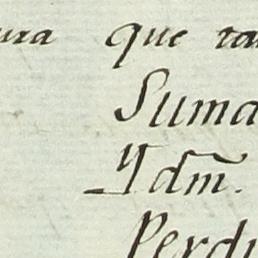 ura que tan
Suma
Ydm.
Perdi